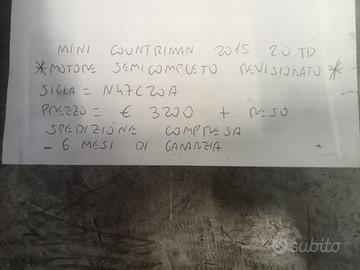 MINI COUNTRIMAN 2015 2.0 TD
*MOTORE SEMICOMPLETO REVISIONATO*
SIGLA = N47C20A
PREZZO = € 3200 + RESO
SPEDIZIONE COMPRESA
- 6 MESI DI GARANZIA
subito